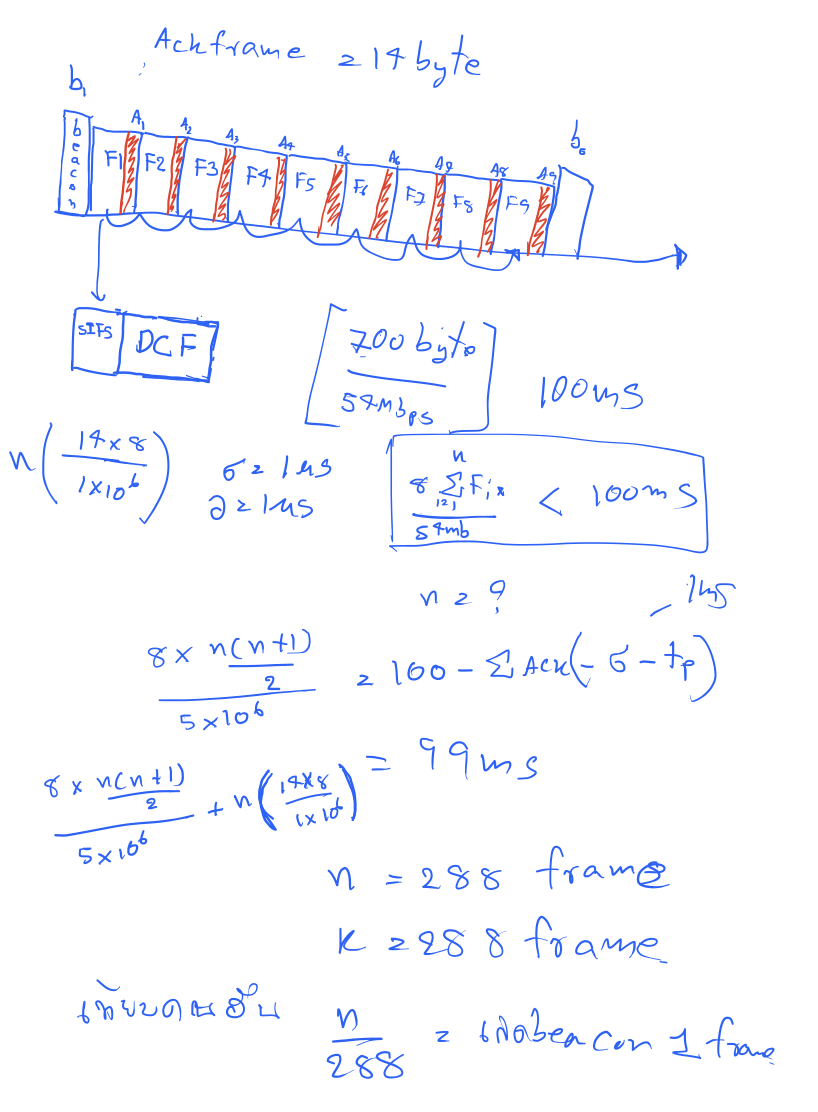 Ack frame = 14 byte
b₁
A₁ A₂ A₃ A₄ A₅ A₆ A₇ A₈ A₉
beacon F1 F2 F3 F4 F5 F6 F7 F8 F9
SIFS DCF
700 byte
54 mbps
100ms
n(14×8 / 1×10⁶)
σ = 1μs
∂ = 1μs
8 Σ Fᵢ / 54mb < 100ms
n
i=1
n = ?
8 × n(n+1)/2 / 5×10⁶ = 100 - Σ Ack(- σ - tₚ)
8 × n(n+1)/2 / 5×10⁶ + n(14×8 / 1×10⁶) = 99ms
n = 288 frame
k = 288 frame
n / 288 = beacon 1 frame